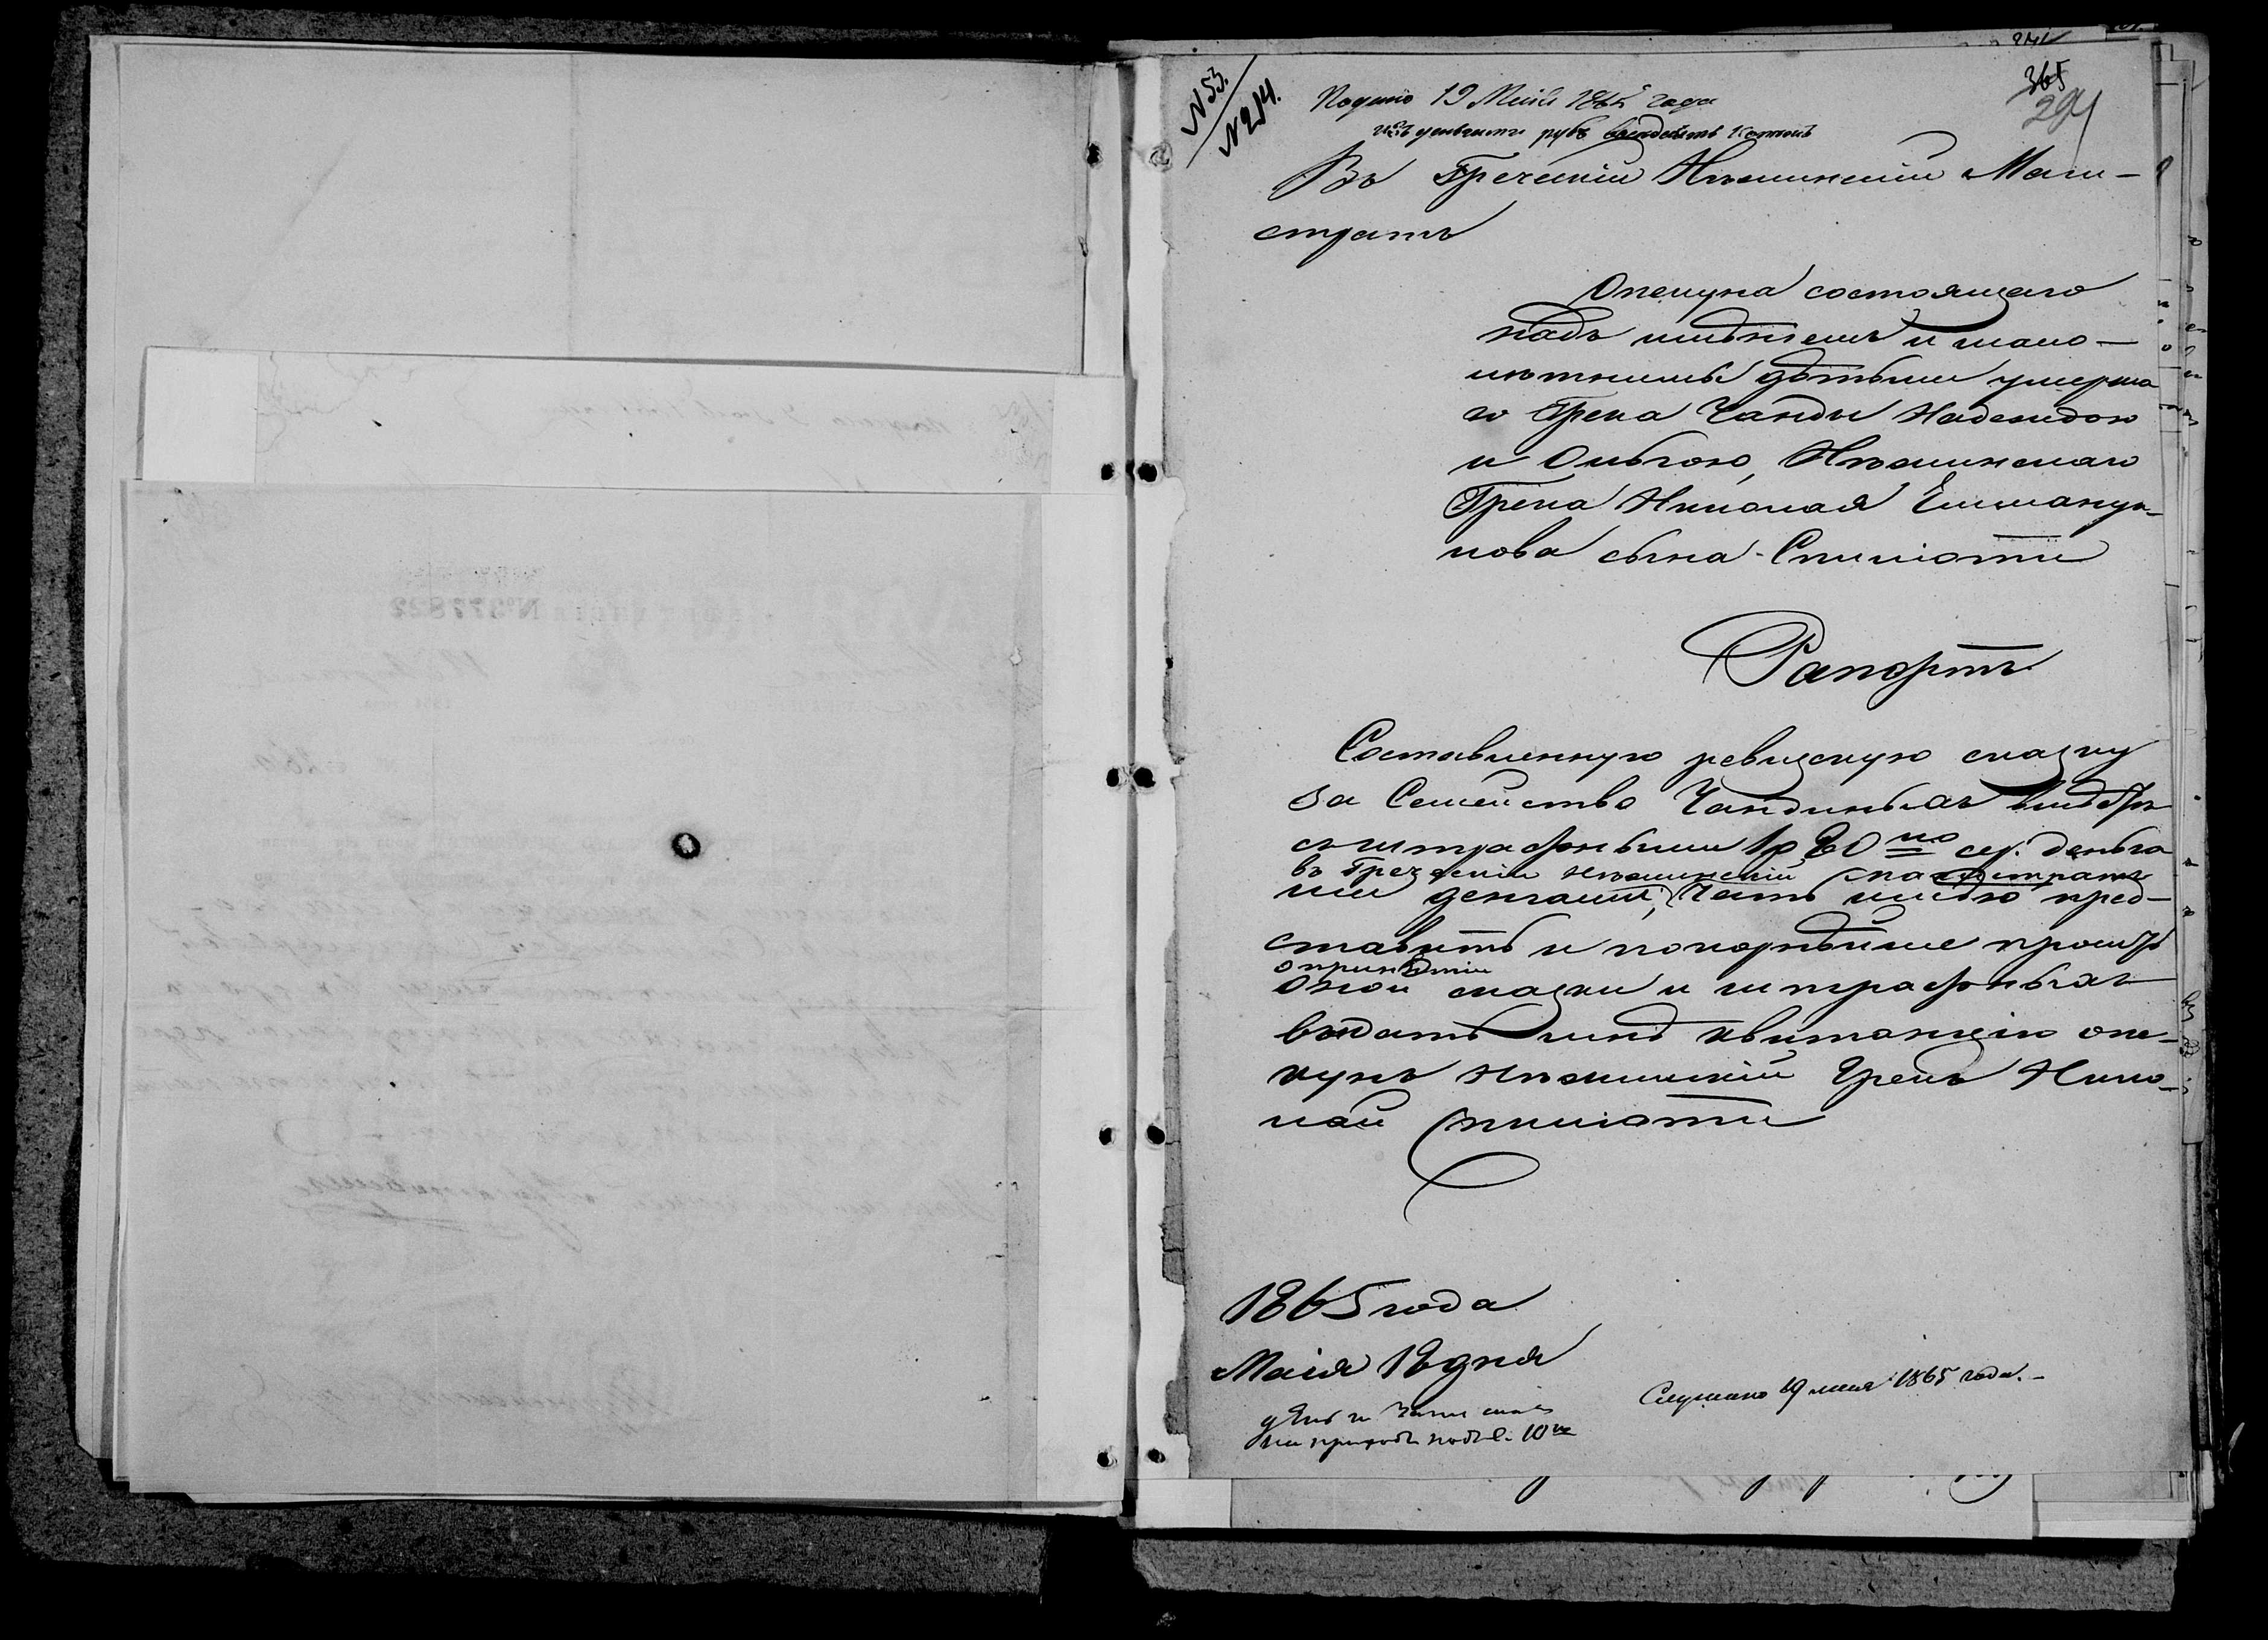 N 53.
N 214.
365
294
Подано 19 Маія 1865 года
рубль восемдесятъ копѣекъ
Въ Греческій Нѣжинскій Маги-
стратъ
Опекуна состоящаго
надъ имѣніемъ и мало-
лѣтними дѣтьми умерша
го Грека Чанды Надеждою
и Ольгою, Нѣжинскаго
Грека Николая Еммануи-
лова сына Спиліоти
Рапортъ
Составленную ревизскую сказку
за Семейство Чандиныхъ вмѣстѣ
съ штрафными 1 р 80 ко сер. деньга
въ Греческій Нѣжинскій магистратъ
ми деньгами, честь имѣю пред-
ставить и покорнѣйше прошу
о принятіи
оной сказки и штрафныхъ
выдать мнѣ квитанцію опе-
кунъ Нѣжинскій Грекъ Нико-
лай Спиліоти
1865 года
Маія 18 дня
на приходъ подъ
Слушано 19 мая 1865 года.-
№377822